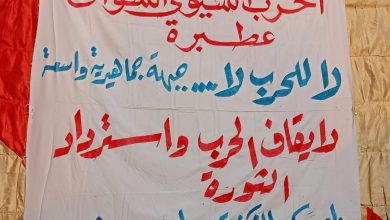 الحزب الشيوعي السوداني
عطبرة
لا للحرب لا... جبهة جماهيرية واسعة
لايقاف الحرب واسترداد
الثورة